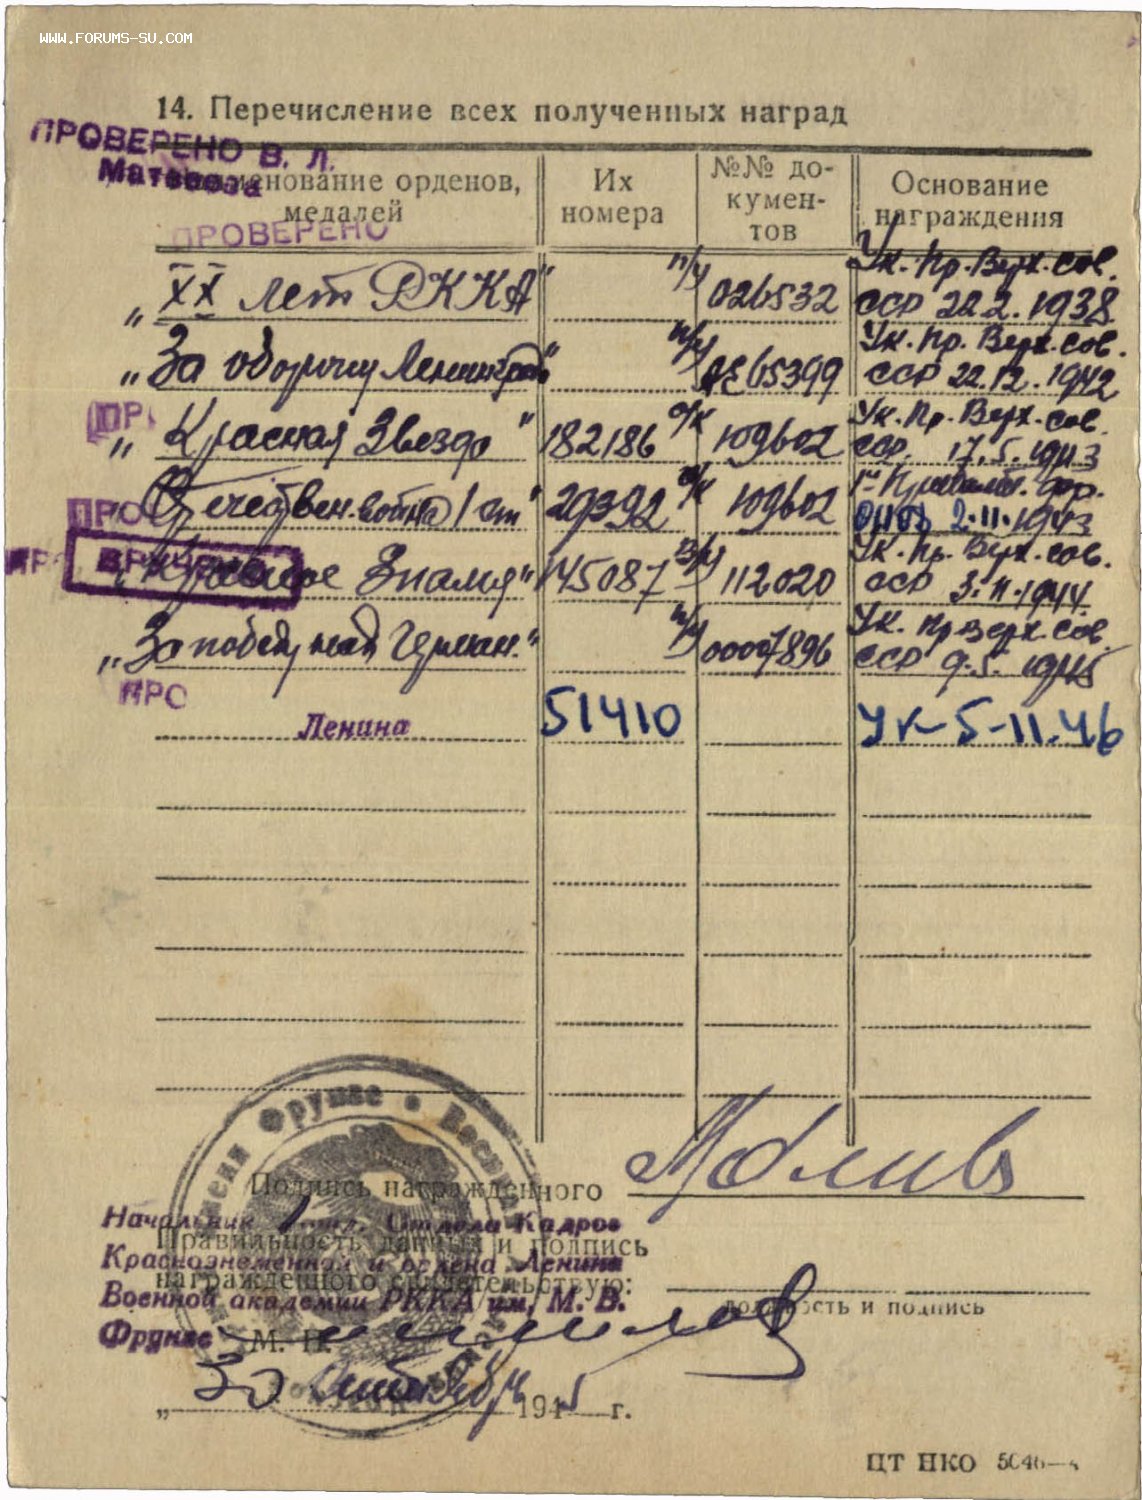 WWW.FORUMS-SU.COM
14. Перечисление всех полученных наград
ПРОВЕРЕНО В. Л.
Матвеева
Наименование орденов, медалей
Их номера
№№ документов
Основание награждения
ПРОВЕРЕНО
„XX лет РККА" п/у 026532 Ук. Пр. Верх. Сов. ССР 22.2.1938
„За оборону Ленинграда" 65399 Ук. Пр. Верх. Сов. ССР 22.12.1942
ПРО
„Красная Звезда" 182186 о/к 109602 Ук. Пр. Верх. Сов. ССР 17.5.1943
ПРО
Отечествен. война 1 ст" 29392 о/к 109602 2.11.1943
ПРО
ВРУЧЕНО
Красное Знамя" 145087 112020 Ук. Пр. Верх. Сов. ССР 3.11.1944
„За победу над Герман." 00007896 Ук. Пр. Верх. Сов. ССР 9.5.1945
ПРО
Ленина 51410 Ук-5-11.46
имени Фрунзе
Подпись награжденного
Начальник 1 отд. Отдела Кадров
Правильность данных и подпись
Краснознаменной и ордена Ленина
награжденного свидетельствую:
Военной академии РККА им. М. В.
должность и подпись
Фрунзе М. П.
„30 октября 1945 г.
ЦТ НКО